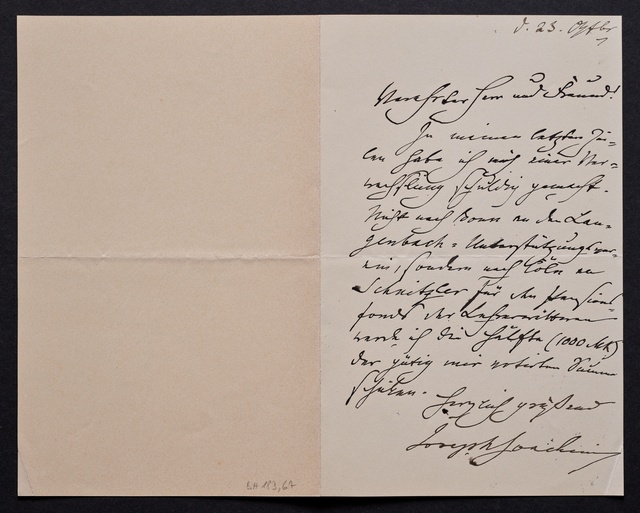 d. 23. Octbr
Verehrter Herr und Freund!
In meinen letzten Zei-
len habe ich mich einer Ver-
wechslung schuldig gemacht.
Nicht nach Bonn an den Lan-
genbach-Unterstützungsver-
ein, sondern nach Cöln an
Schnitzler für den Pensions
fonds der Lehrerwittwen
werde ich die Hälfte (1000 Mk)
der gütig mir Summe
schicken.
Herzlich grüßend
Joseph Joachim
BH 183,67